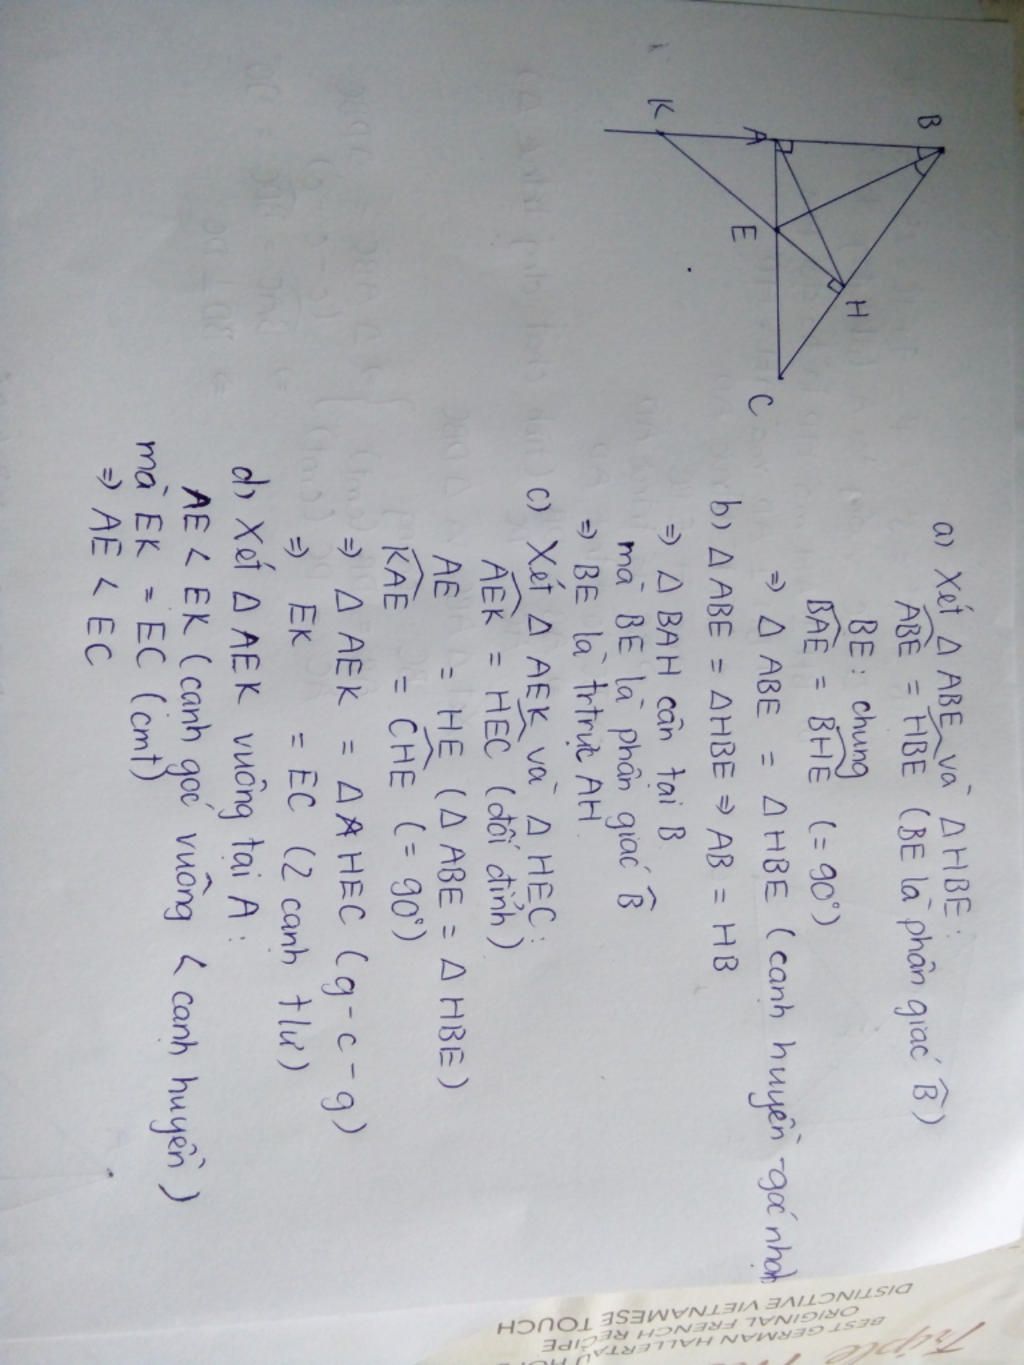 B
A
K
E
H
C
a) Xét Δ ABE và ΔHBE:
ABE = HBE (BE là phân giác B)
BE: chung
BAE = BHE (= 90°)
⇒ Δ ABE = Δ HBE (cạnh huyền - góc nhọn
b) Δ ABE = ΔHBE ⇒ AB = HB
⇒ Δ BAH cân tại B
mà BE là phân giác B
⇒ BE là trtrực AH
c) Xét Δ AEK và Δ HEC:
AEK = HEC (đối đỉnh)
AE = HE (Δ ABE = Δ HBE)
KAE = CHE (= 90°)
⇒ Δ AEK = Δ AHEC (g - c - g)
⇒ EK = EC (2 cạnh tlư)
d) Xét Δ AEK vuông tại A:
AE < EK (cạnh góc vuông < cạnh huyền)
mà EK = EC (cmt)
⇒ AE < EC
BEST GERMAN HALLERTAU
ORIGINAL FRENCH RECIPE
DISTINCTIVE VIETNAMESE TOUCH